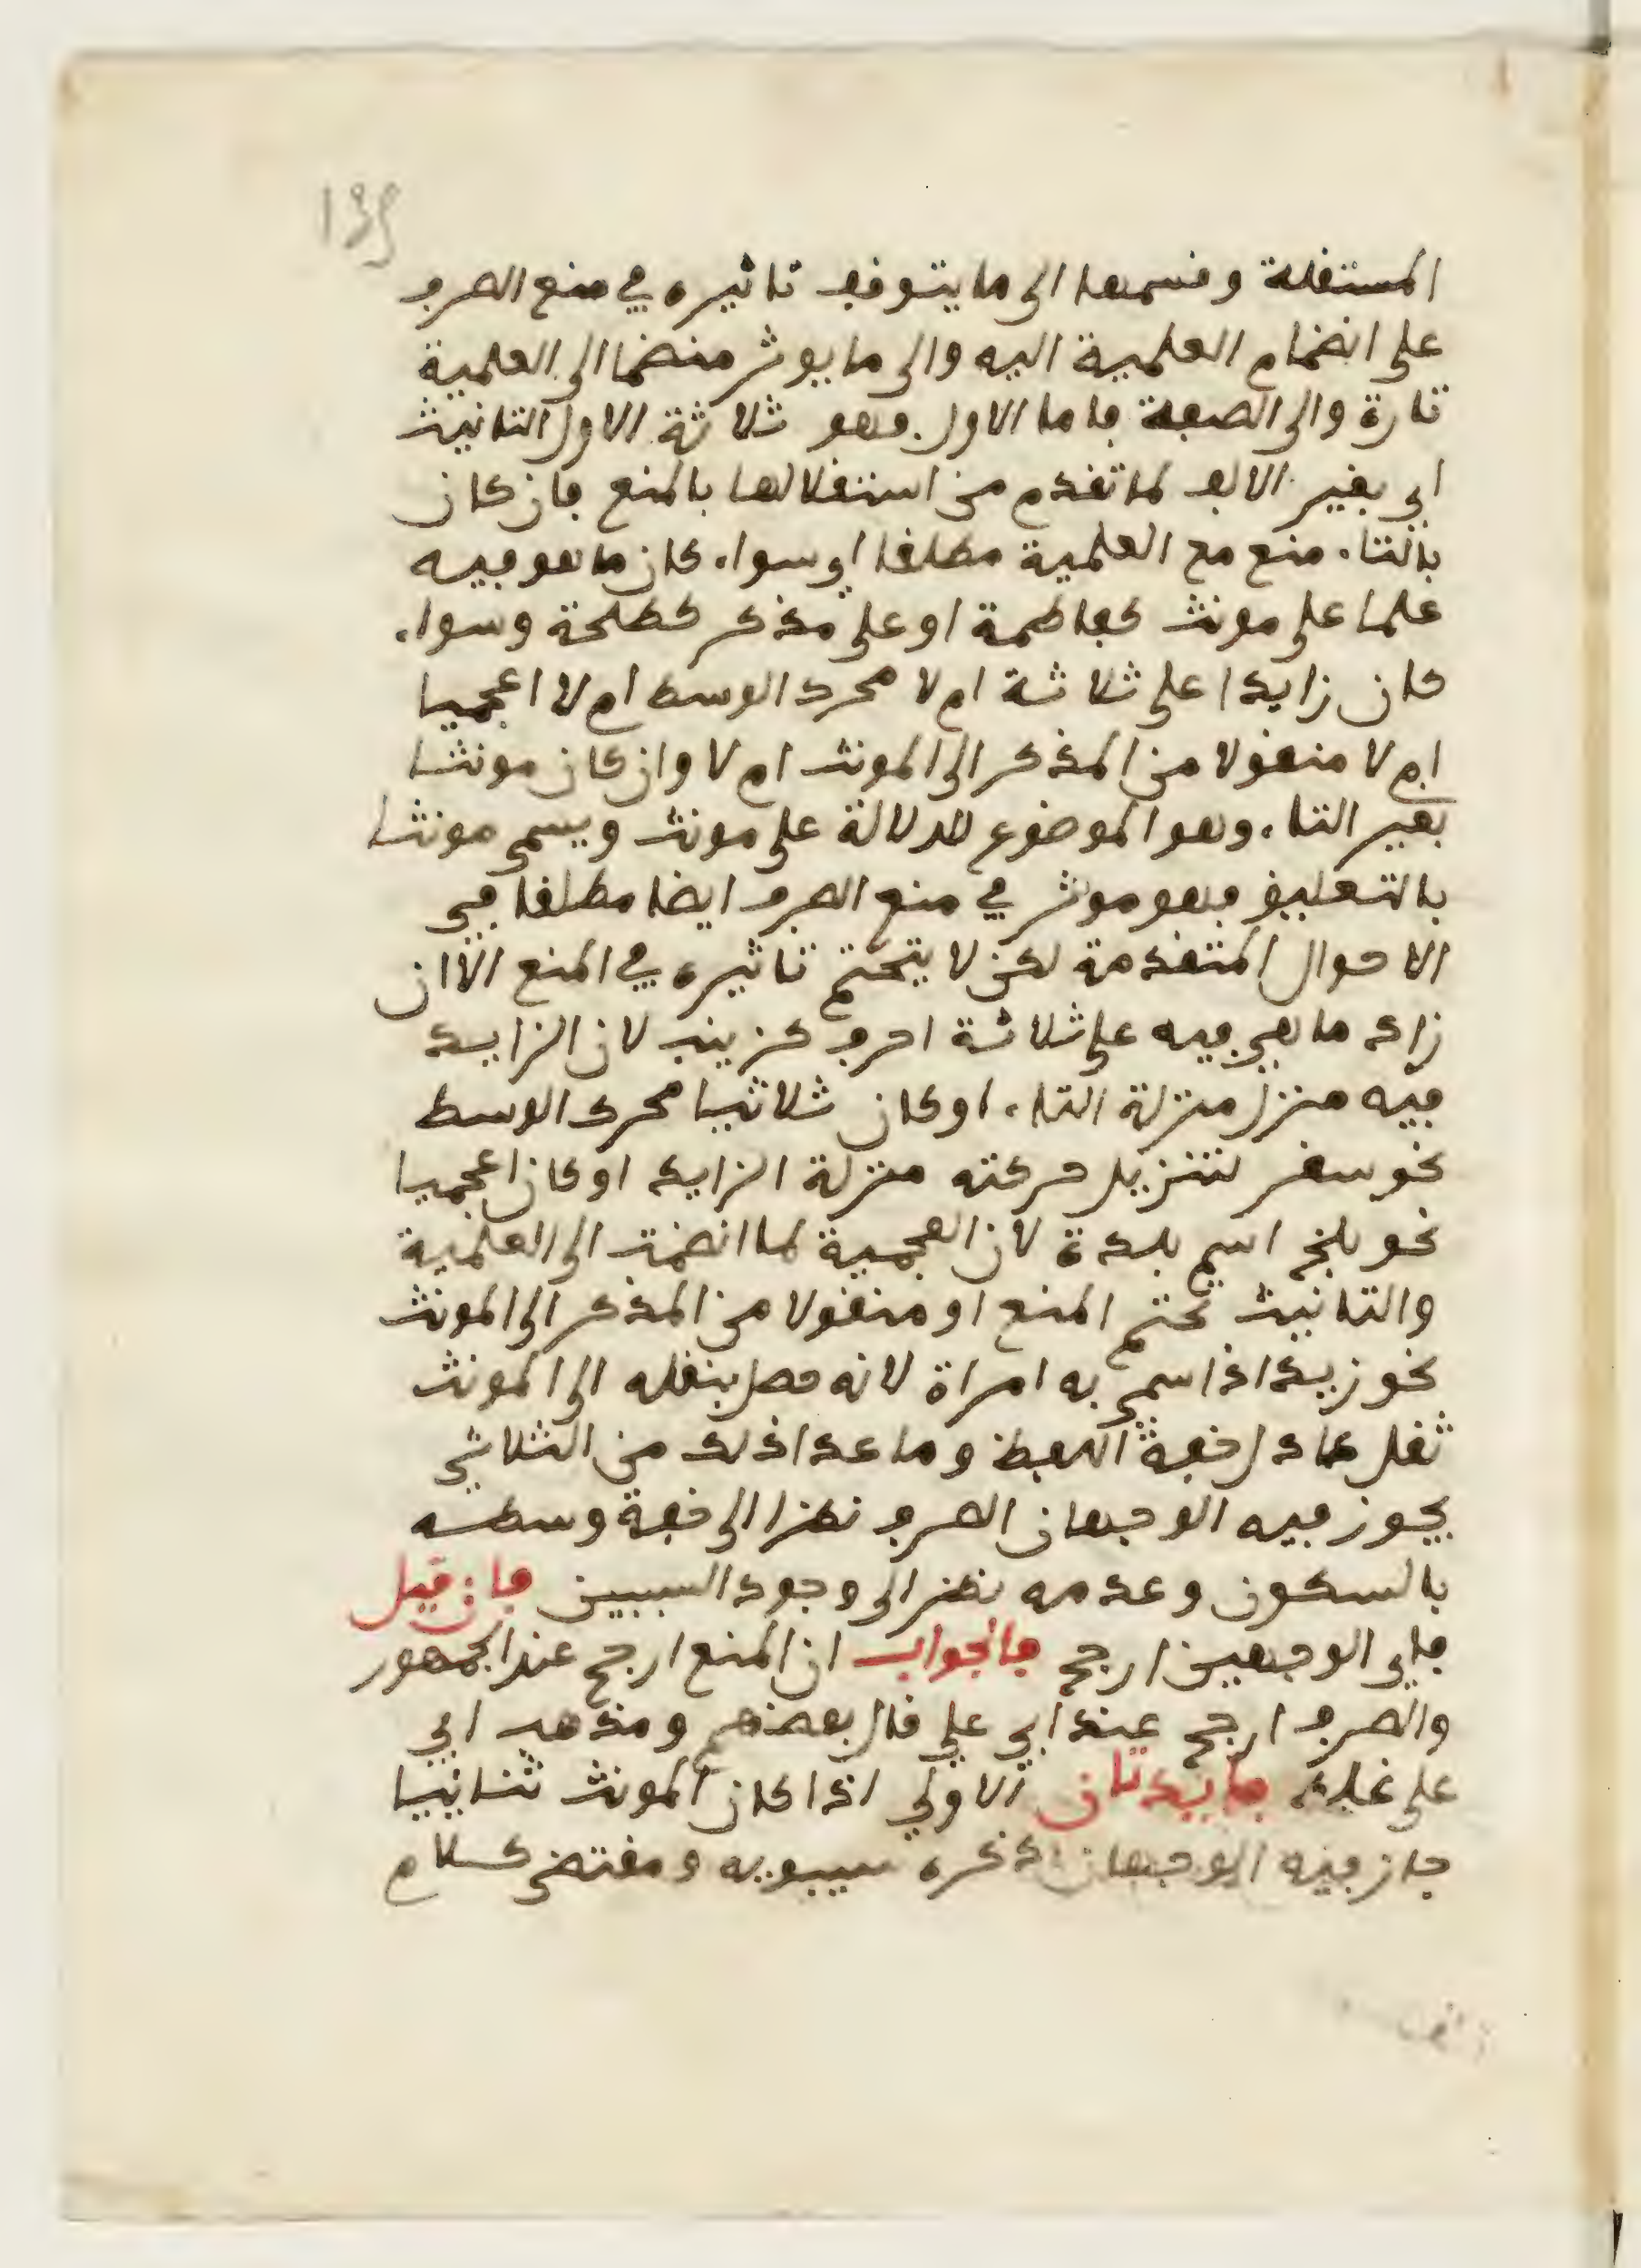 139
المستقلة وقسمها الى ما يتوقف تاثيره في منع الصرف
على انضمام العلمية اليه والى ما يوثر منضما الى العلمية
تارة والى الصفة فاما الاول فهو ثلاثة الاول التانيث
اي بغير الالف لما تقدم من استقلالها بالمنع فان كان
بالتاء منع مع العلمية مطلقا اي سواء كان ما هو فيه
علما على مونث كفاطمة او على مذكر كطلحة وسواء
كان زايدا على ثلاثة ام لا محرك الوسط ام لا اعجميا
ام لا منقولا من المذكر الى المونث ام لا وان كان مونثا
بغير التاء وهو الموضوع للدلالة على مونث ويسمى مونثا
بالتعليق فهو موثر في منع الصرف ايضا مطلقا في
الاحوال المتقدمة لكن لا يتحتم تاثيره في المنع الا ان
زاد ما هي فيه على ثلاثة احرف كزينب لان الزايد
فيه منزل منزلة التاء او كان ثلاثيا محرك الوسط
نحو سقر لتنزيل حركته منزلة الزايد او كان اعجميا
نحو بلخ اسم بلدة لان العجمية لما انضمت الى العلمية
والتانيث تحتم المنع او منقولا من المذكر الى المونث
نحو زيد اذا سمي به امراة لانه حصل بنقله الى المونث
ثقل عادل خفة اللفظ وما عدا ذلك من الثلاثي
يجوز فيه الوجهان الصرف نظرا الى خفة وسطه
بالسكون وعدمه نظرا الى وجود السببين فان قيل
فاي الوجهين ارجح فالجواب ان المنع ارجح عند الجمهور
والصرف ارجح عند ابي علي قال بعضهم ومذهب ابي
علي غلط فايدتان الاولى اذا كان المونث ثنائيا
جاز فيه الوجهان ذكره سيبويه ومقتضى كلام